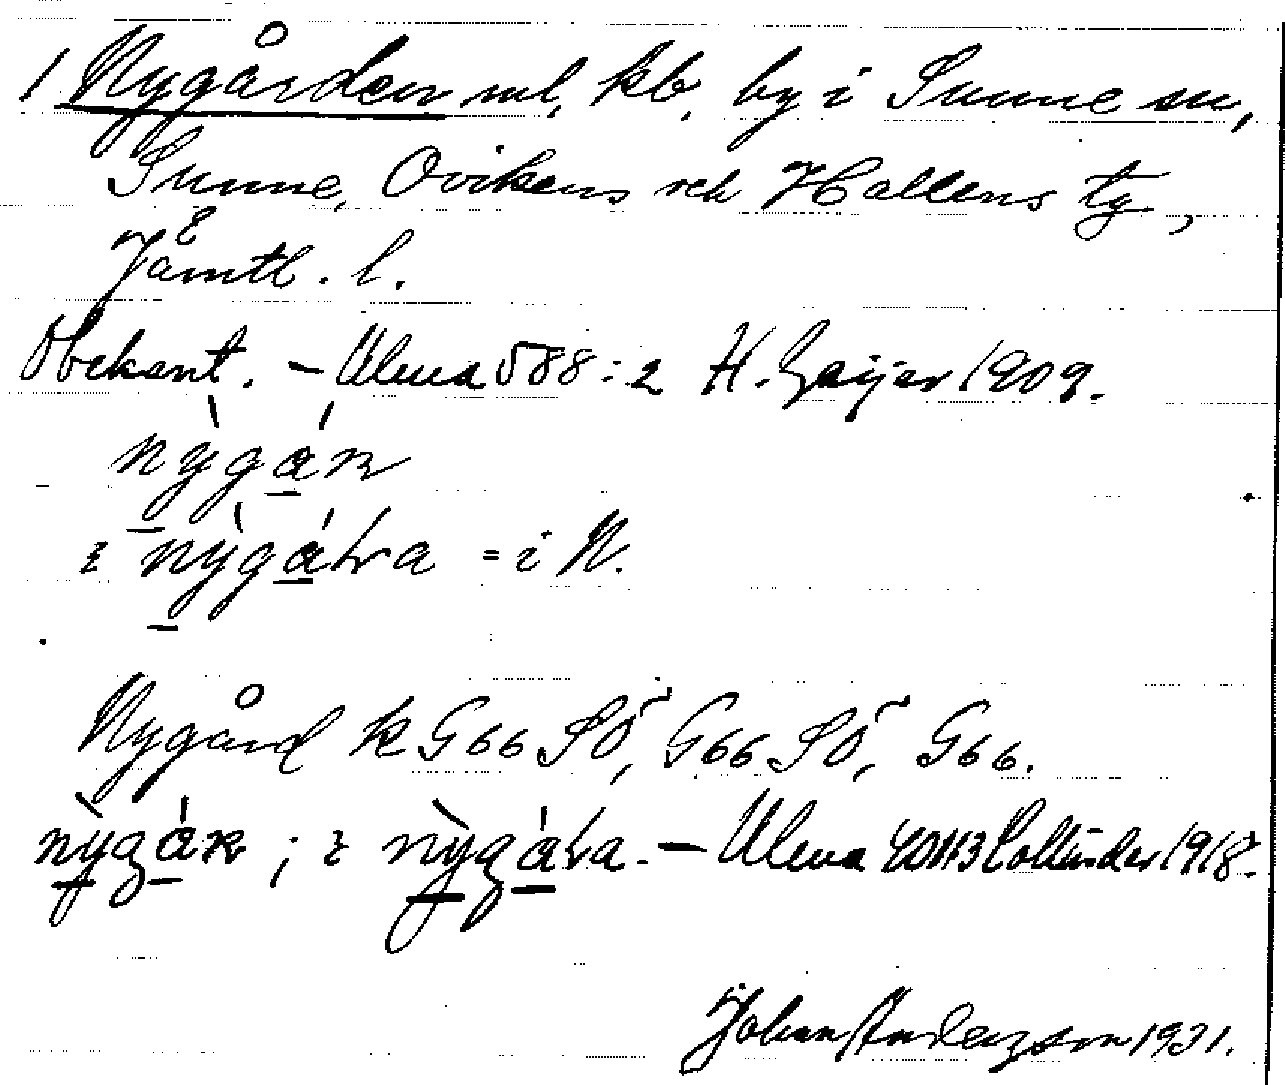 1 Nygården ml. kb. by i Sunne sn,
Sunne, Ovikens och Hallens tg,
Jämtl. l.
Obekant. – Ulma 588:2 H. Geijer 1909.
nỳgáṟ
i nỳgáṟa = i N.
Nygård k G66 SÖ, G66 SÖ, G66.
nỳgáṟ ; i nỳgáṟa. – Ulma Collinder 1918.
Johan Anderzson 1931.